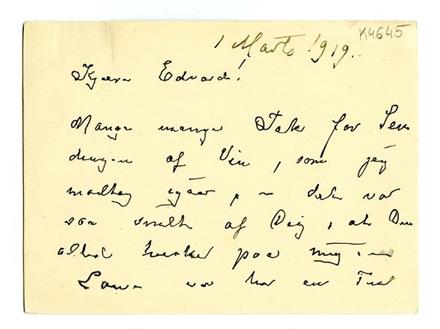 1 Marts 1919.
K4645
Kjære Edvard!
Mange mange Tak for Sen
dingen af Vin, som jeg
modtog igaar, – det var
saa smukt af Dig, at Du
altid tænker paa mig.
var her en